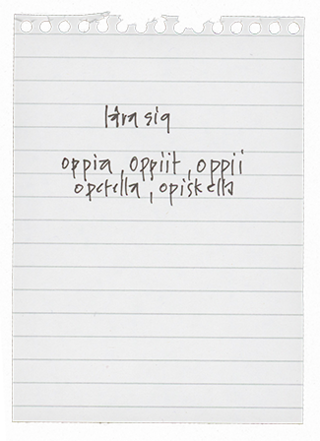 lära sig
oppia, oppiit, oppii
opetella, opiskella